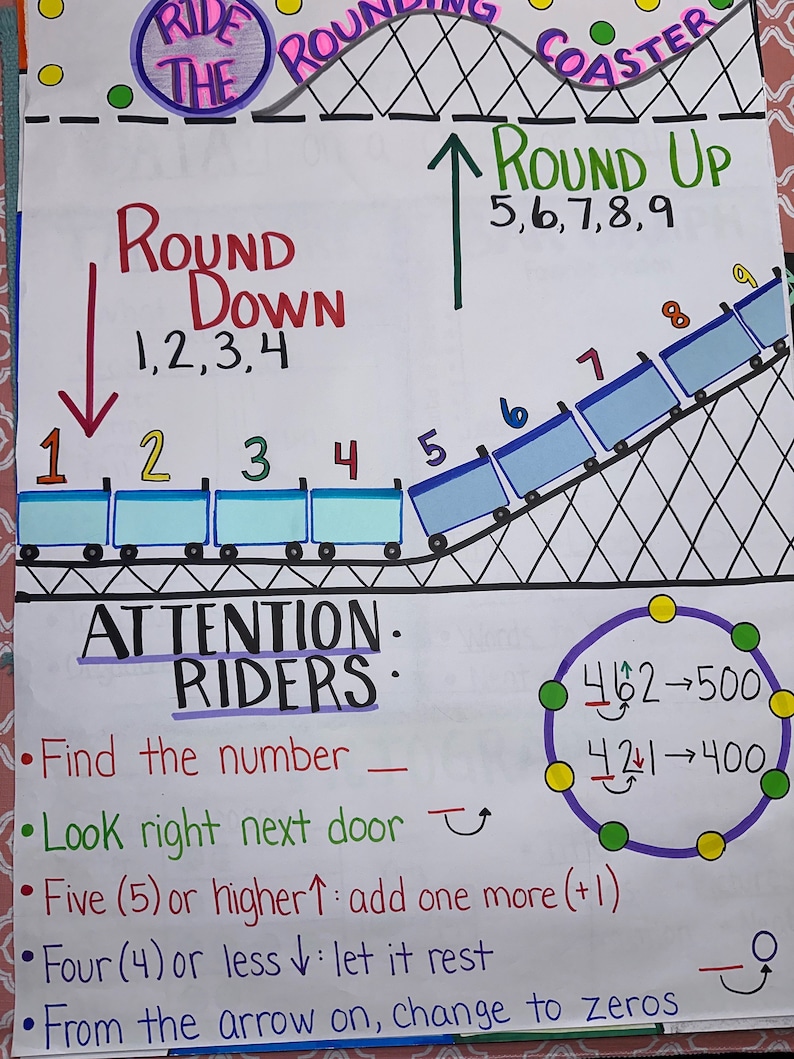 RIDE
THE
ROUNDING
COASTER
ROUND UP
5,6,7,8,9
ROUND
DOWN
1,2,3,4
1 2 3 4 5 6 7 8 9
ATTENTION
RIDERS:
462→500
421→400
•Find the number _
•Look right next door _
•Five (5) or higher↑: add one more (+1)
•Four (4) or less ↓: let it rest
_ 0
•From the arrow on, change to zeros